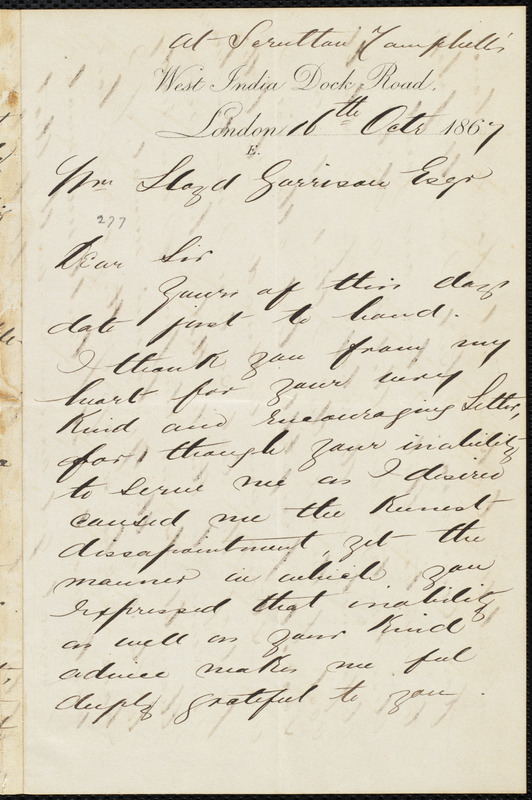 At Scrutton Campbell's
West India Dock Road.
London 16th Octr 1867
E.
Wm Lloyd Garrison Esqr
277
Dear Sir
Yours of this days
date just to hand.
I thank you from my
heart for your very
Kind and encouraging Letter,
for though your inability
to serve me as I desired
caused me the Keenest
dissapointment, yet the
manner in which you
expressed that inability
as well as your Kind
advice makes me feel
deeply grateful to you.